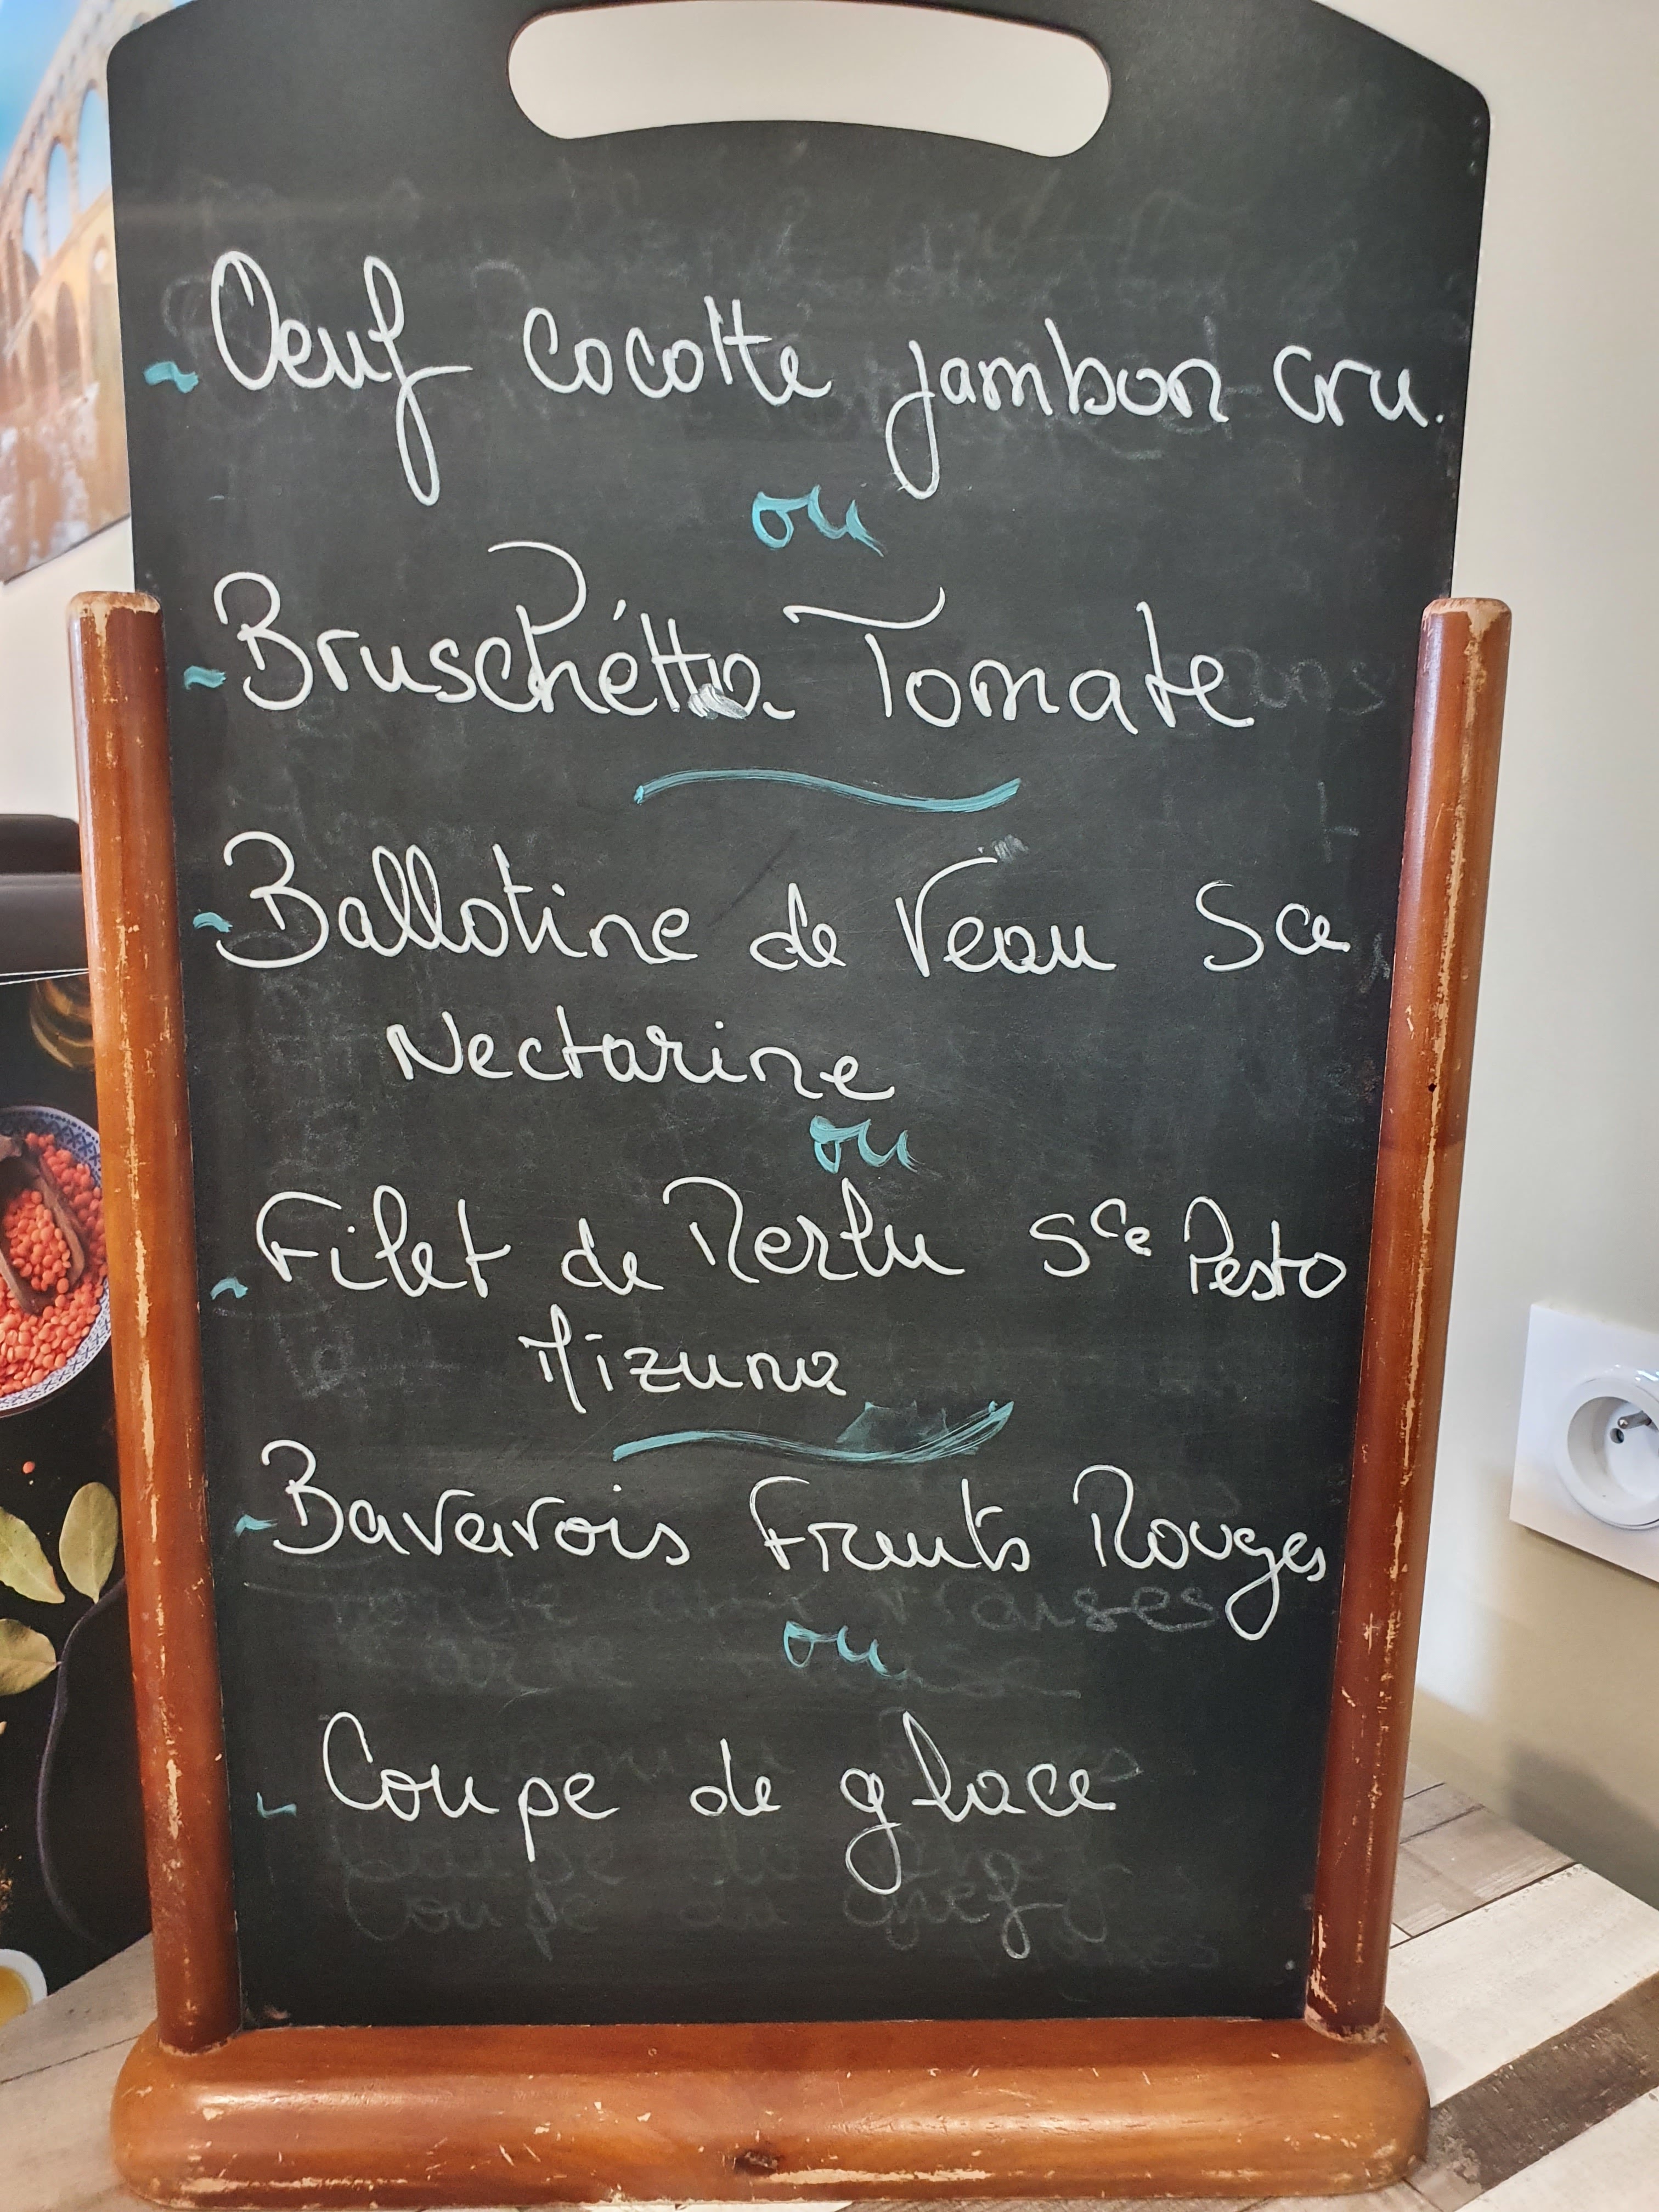 ~ Oeuf cocotte jambon cru.
ou
~ Bruschétta Tomate
~ Ballotine de Veau Sce
Nectarine
ou
~ Filet de Merlu Sce Pesto
Mizuna
~ Bavarois Fruits Rouges
ou
~ Coupe de glace